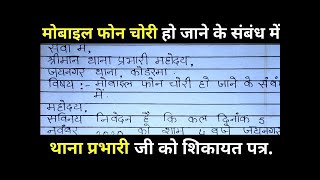 मोबाइल फोन चोरी हो जाने के संबंध में
सेवा में,
श्रीमान थाना प्रभारी महोदय,
जयनगर थाना, कोडरमा
विषय :- मोबाइल फोन चोरी हो जाने के संबंध
में
महोदय,
सविनय निवेदन है कि कल दिनांक 5
नवंबर को शाम 4 बजे जयनगर
थाना प्रभारी जी को शिकायत पत्र.